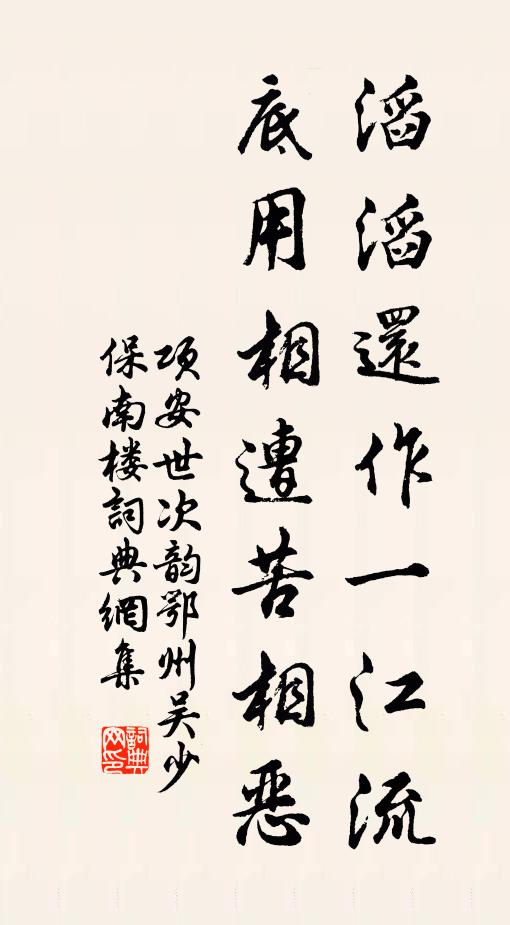 滔滔還作一江流
底用相遭苦相惡
项安世次韵鄂州吴少
保南楼詞典網集
詞典網印